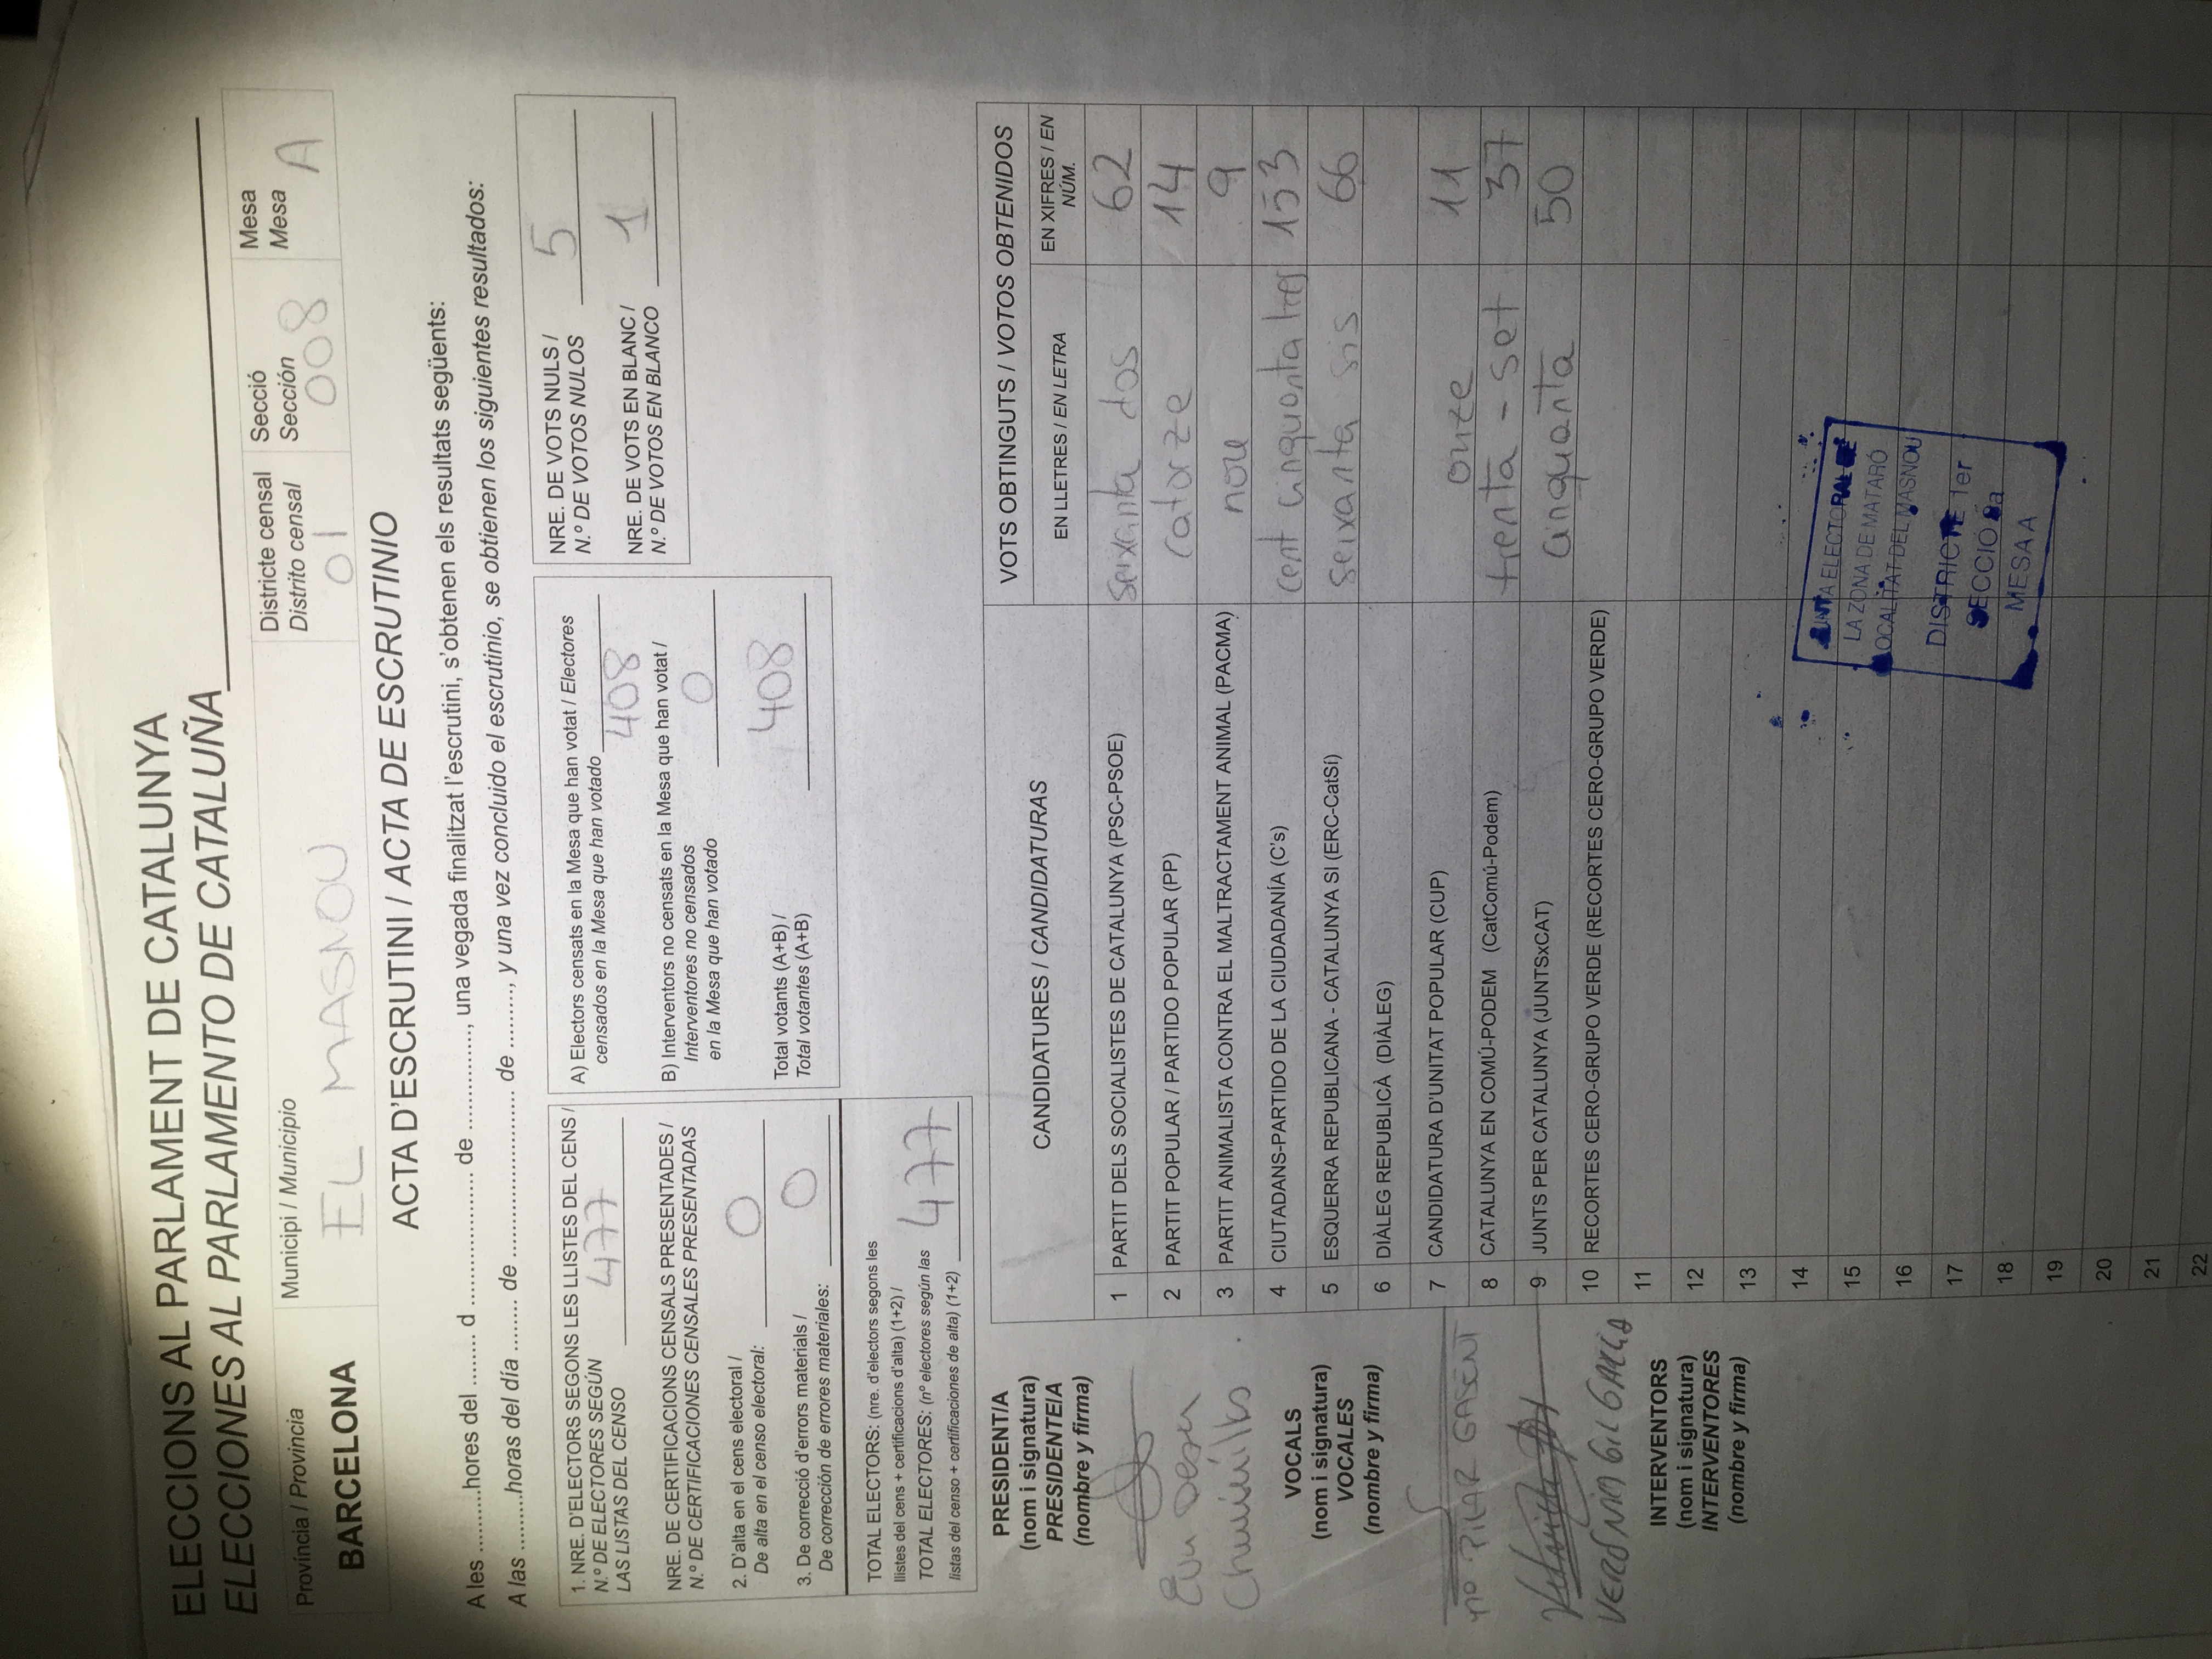 ELECCIONS AL PARLAMENT DE CATALUNYA
ELECCIONES AL PARLAMENTO DE CATALUÑA
Província / Provincia
BARCELONA
Municipi / Municipio
EL MASNOU
Districte censal
Distrito censal
01
Secció
Sección
008
Mesa
Mesa
A
ACTA D'ESCRUTINI / ACTA DE ESCRUTINIO
A les ..........hores del ........ d ..................... de ..............., una vegada finalitzat l'escrutini, s'obtenen els resultats següents:
A las .........horas del día ........ de .......................... de ........., y una vez concluido el escrutinio, se obtienen los siguientes resultados:
1. NRE. D'ELECTORS SEGONS LES LLISTES DEL CENS /
N.º DE ELECTORES SEGÚN
LAS LISTAS DEL CENSO 477
NRE. DE CERTIFICACIONS CENSALS PRESENTADES /
N.º DE CERTIFICACIONES CENSALES PRESENTADAS
2. D'alta en el cens electoral /
De alta en el censo electoral: 0
3. De correcció d'errors materials /
De corrección de errores materiales: 0
TOTAL ELECTORS: (nre. d'electors segons les
llistes del cens + certificacions d'alta) (1+2) /
TOTAL ELECTORES: (nº electores según las
listas del censo + certificaciones de alta) (1+2) 477
A) Electors censats en la Mesa que han votat / Electores
censados en la Mesa que han votado
408
B) Interventors no censats en la Mesa que han votat /
Interventores no censados
en la Mesa que han votado 0
Total votants (A+B) /
Total votantes (A+B) 408
NRE. DE VOTS NULS /
N.º DE VOTOS NULOS 5
NRE. DE VOTS EN BLANC /
N.º DE VOTOS EN BLANCO 1
PRESIDENT/A
(nom i signatura)
PRESIDENTE/A
(nombre y firma)
Eva
VOCALS
(nom i signatura)
VOCALES
(nombre y firma)
Mª PILAR GASENT
VERÓNICA GIL
INTERVENTORS
(nom i signatura)
INTERVENTORES
(nombre y firma)
CANDIDATURES / CANDIDATURAS
VOTS OBTINGUTS / VOTOS OBTENIDOS
EN LLETRES / EN LETRA
EN XIFRES / EN
NÚM.
1 PARTIT DELS SOCIALISTES DE CATALUNYA (PSC-PSOE) seixanta dos 62
2 PARTIT POPULAR / PARTIDO POPULAR (PP) catorze 14
3 PARTIT ANIMALISTA CONTRA EL MALTRACTAMENT ANIMAL (PACMA) nou 9
4 CIUTADANS-PARTIDO DE LA CIUDADANÍA (C's) cent cinquanta tres 153
5 ESQUERRA REPUBLICANA - CATALUNYA SI (ERC-CatSí) seixanta sis 66
6 DIÀLEG REPUBLICÀ (DIÀLEG)
7 CANDIDATURA D'UNITAT POPULAR (CUP) onze 11
8 CATALUNYA EN COMÚ-PODEM (CatComú-Podem) trenta - set 37
9 JUNTS PER CATALUNYA (JUNTSxCAT) cinquanta 50
10 RECORTES CERO-GRUPO VERDE (RECORTES CERO-GRUPO VERDE)
11
12
13
14
15
16
17
18
19
20
21
22
JUNTA ELECTORAL DE
LA ZONA DE MATARÓ
LOCALITAT DEL MASNOU
DISTRICTE 1er
SECCIÓ 8a
MESA A